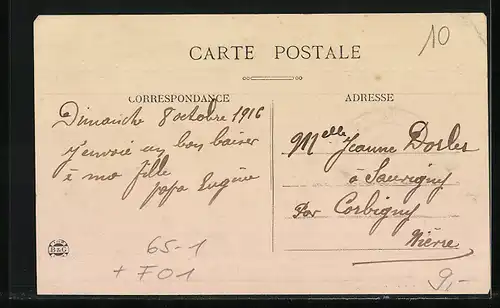 10
CARTE POSTALE
CORRESPONDANCE
Dimanche 8 octobre 1916
j'envoie un bon baiser
à ma fille
papa Eugène
ADRESSE
Melle Jeanne
à Sauvigny
Par Corbigny
Nièvre
B&G
65-1
+ F01
9,-